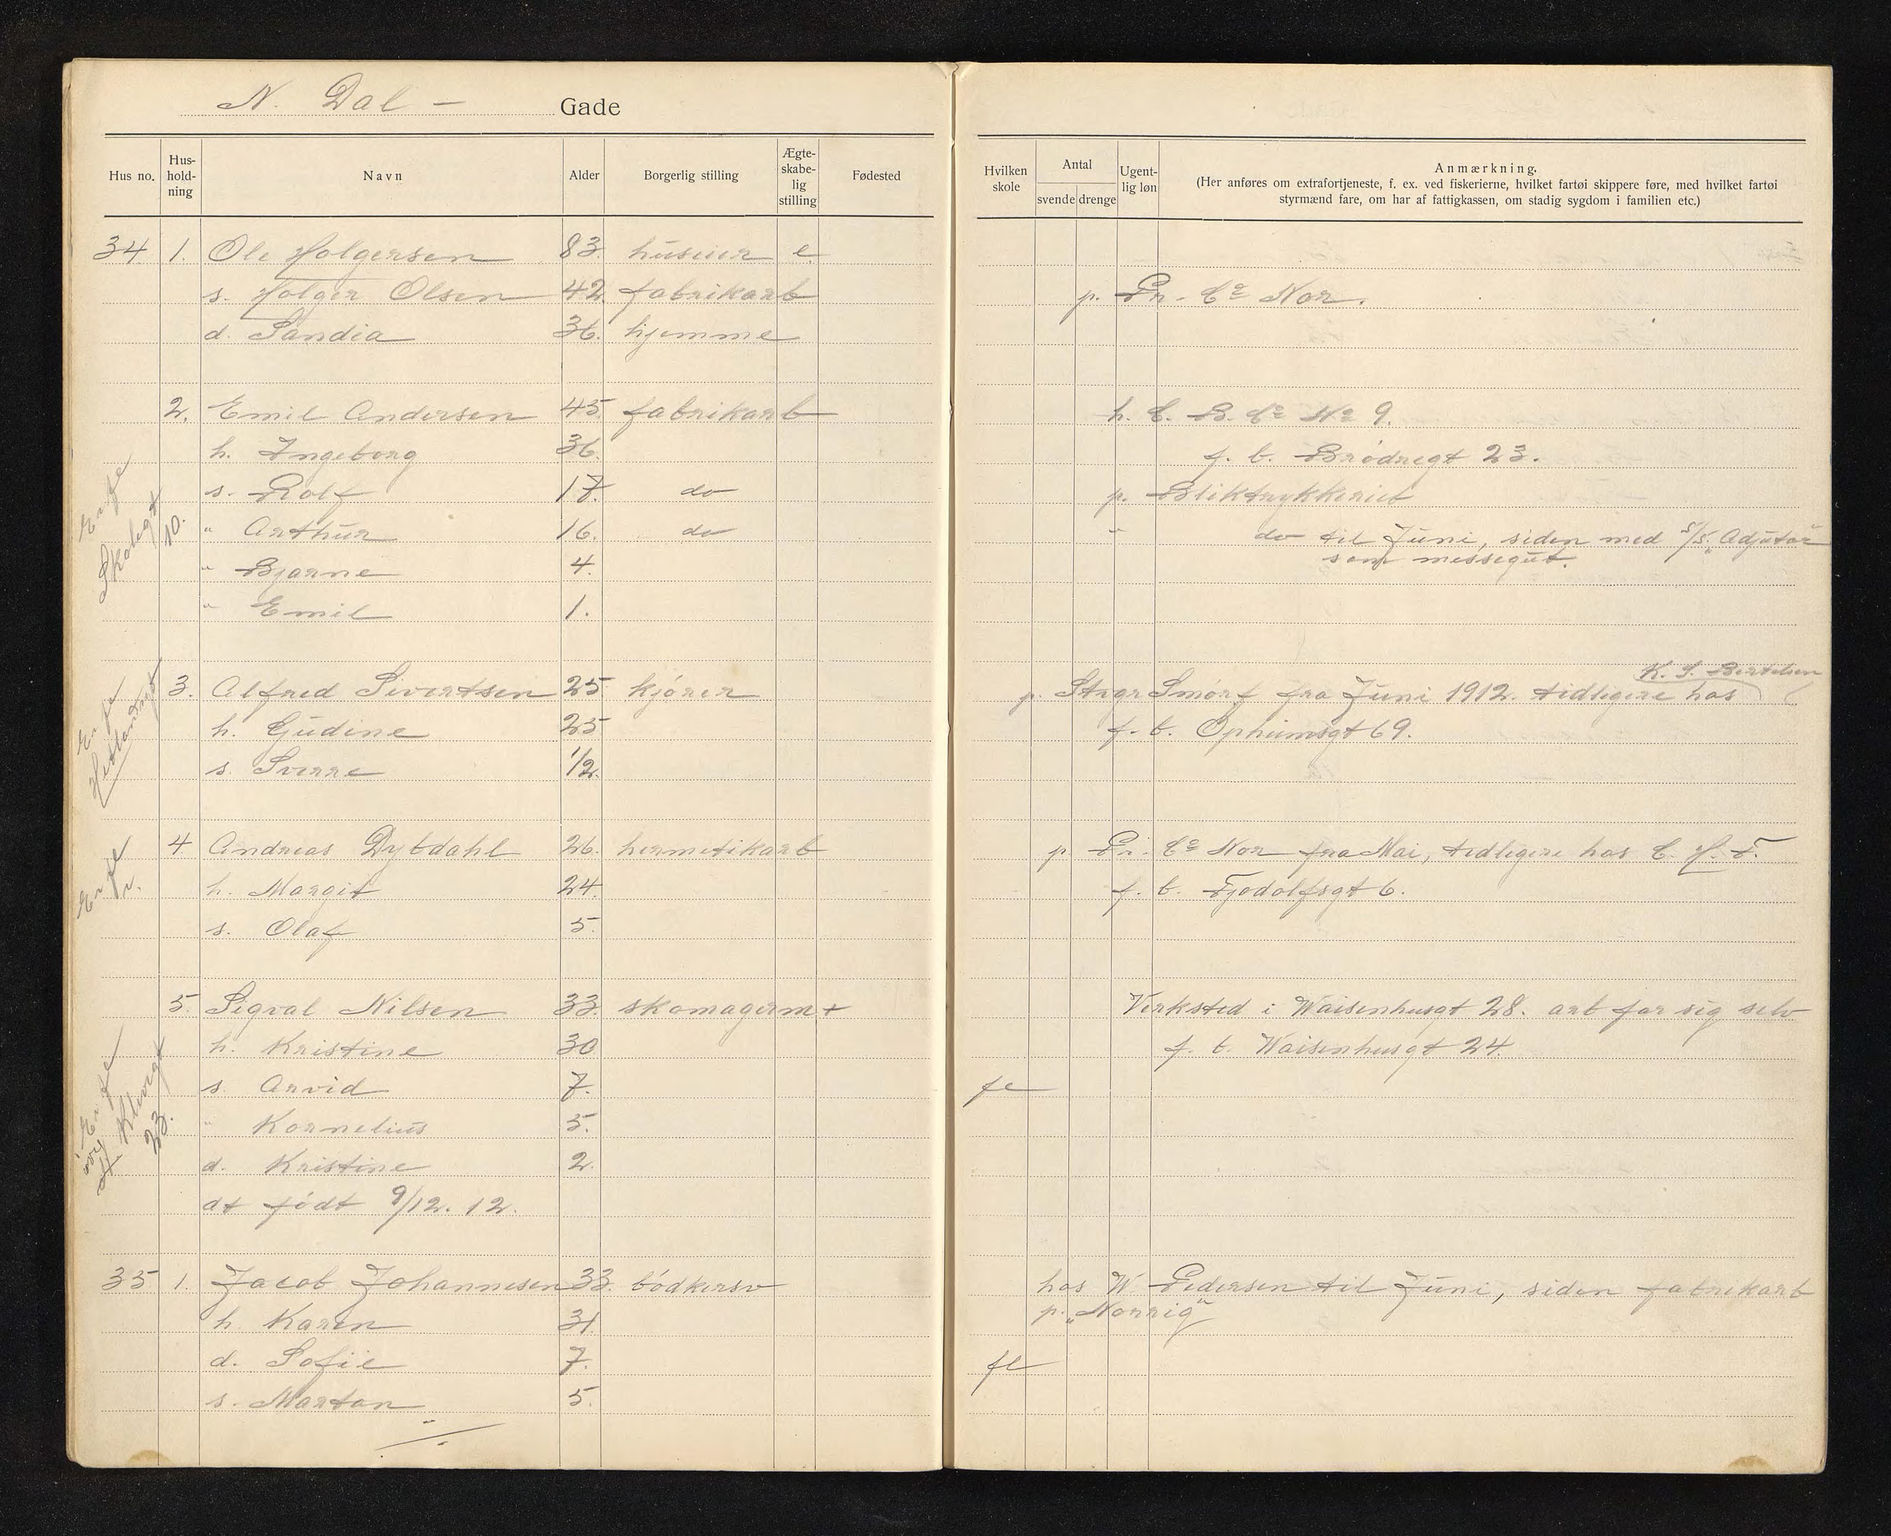 N. Dal - Gade
Hus no. Hus-hold-ning Navn Alder Borgerlig stilling Ægte-skabe-lig stilling Fødested
Hvilken skole Antal svende drenge Ugent-lig løn Anmærkning.
(Her anføres om extrafortjeneste, f. ex. ved fiskerierne, hvilket fartøi skippere føre, med hvilket fartøi
styrmænd fare, om har af fattigkassen, om stadig sygdom i familien etc.)
34 1. Ole Holgersen 83. huseier e
s. Holger Olsen 42. fabrikarb p. Pr. Co Nor.
d. Sandia 36. hjemme
2. Emil Andersen 45. fabrikarb h. C. B. Co No 9.
h. Ingeborg 36. f. b. Brödregt 23.
s. Rolf 17. do p. Bliktrykkeriet
" Arthur 16. do " do til Juni, siden med s/s "Adjutør"
som messegut.
" Bjarne 4.
" Emil 1.
Er fl
Skolegt
10.
K. S. Bertelsen
3. Alfred Sivertsen 25 kjörer p. Stvgr Smörf fra Juni 1912. tidligere hos
h. Gudine 25 f. b. Ophiimsgt 69.
s. Sverre 1/2.
Er fl
Hetlandsgt
4 Andreas Dybdahl 26. hermetikarb p. Pr. Co Nor fra Mai, tidligere hos C. H. F.
h. Margit 24. f. b. Tjodolfsgt 6.
s. Olaf 5.
Er fl
5. Sigval Nilsen 33. skomagerm + Verksted i Waisenhusgt 28. arb for sig selv
h. Kristine 30 f. b. Waisenhusgt 24.
s. Arvid 7. fl
" Kornelius 5.
d. Kristine 2.
dt födt 9/12. 12.
Er fl
Klevegt
23.
35 1. Jacob Johannesen 33. bödkersv hos W. Pedersen til Juni, siden fabrikarb
h. Karen 31. p. "Norrig"
d. Sofie 7. fl
s. Marton 5.